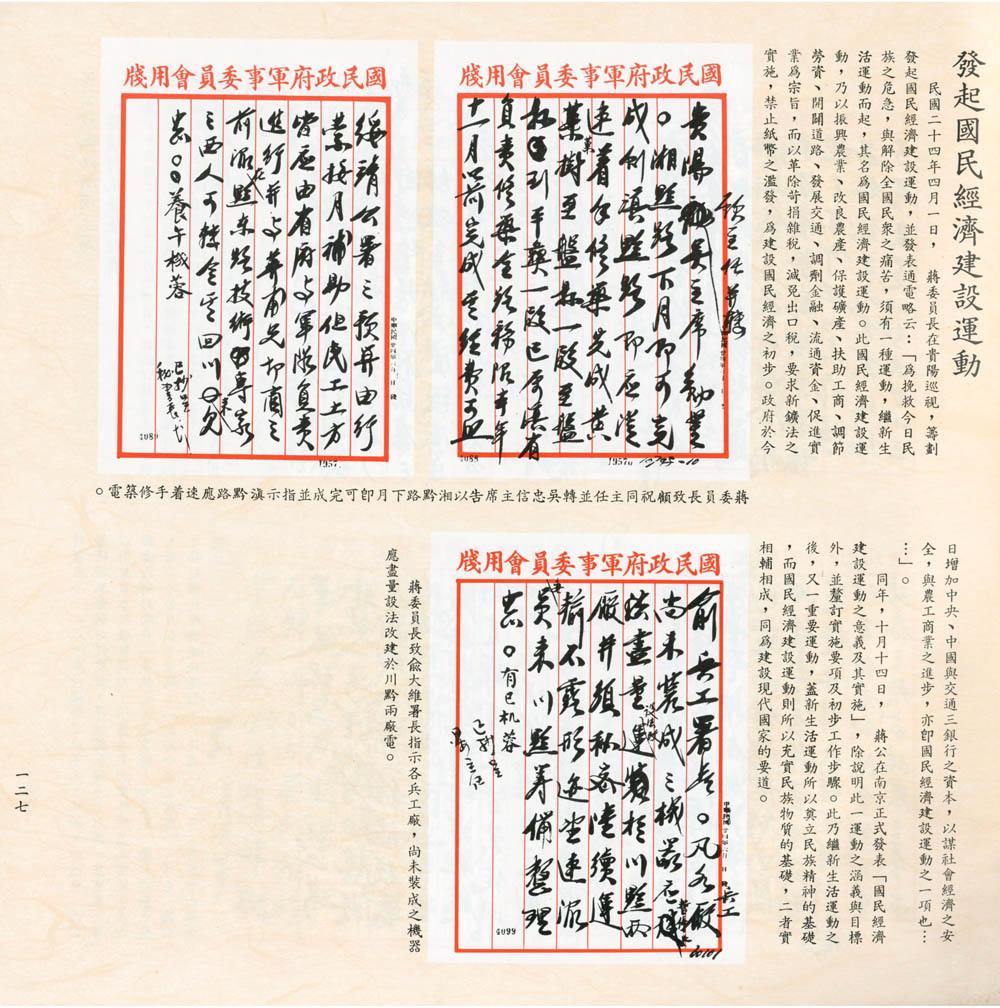 發起國民經濟建設運動
民國二十四年四月一日,蔣委員長在貴陽巡視,籌劃
發起國民經濟建設運動,並發表通電略云:「為挽救今日民
族之危急,與解除全國民衆之痛苦,須有一種運動,繼新生
活運動而起,其名為國民經濟建設運動。此國民經濟建設運
動,乃以振興農業、改良農產、保護礦產、扶助工商、調節
勞資、開闢道路、發展交通、調劑金融、流通資金、促進實
業為宗旨,而以革除苛捐雜稅,減免出口稅,要求新鑛法之
實施,禁止紙幣之濫發,為建設國民經濟之初步。政府於今
國民政府軍事委員會用牋
貴陽 顧主任並轉 吳主席勳鑒
。湘黔路下月即可完
成則滇黔路即應從
速着手修築先成黃
葉樹至盤縣一段至盤
到平彝一段已另派有
負責修築全路務限本年
十一月以前完成其經費可照
4088
19570
國民政府軍事委員會用牋
綏靖公署之預算由行
營按月補助但民工土方
皆應由省府與軍隊負責
進行并與兄切商之
前派在黔東路技術專家
西人可轉令其回川
。養午機蓉
4089
1957.
蔣委員長致顧祝同主任並轉吳忠信主席告以湘黔路下月即可完成並指示滇黔路應速着手修築電。
日增加中央、中國與交通三銀行之資本,以謀社會經濟之安
全,與農工商業之進步,亦即國民經濟建設運動之一項也…
…」。
同年,十月十四日,蔣公在南京正式發表「國民經濟
建設運動之意義及其實施」,除說明此一運動之涵義與目標
外,並釐訂實施要項及初步工作步驟。此乃繼新生活運動之
後,又一重要運動,蓋新生活運動所以奠立民族精神的基礎
,而國民經濟建設運動則所以充實民族物質的基礎,二者實
相輔相成,同為建設現代國家的要道。
國民政府軍事委員會用牋
俞兵工署長。凡各兵工廠
尚未裝成之機器應
盡量設法改運於川黔兩
廠并須秘密陸續運
輸不露形迹望速派
員來川黔籌備整理
。有巳机蓉
4099
蔣委員長致俞大維署長指示各兵工廠,尚未裝成之機器
應盡量設法改建於川黔兩廠電。
一二七